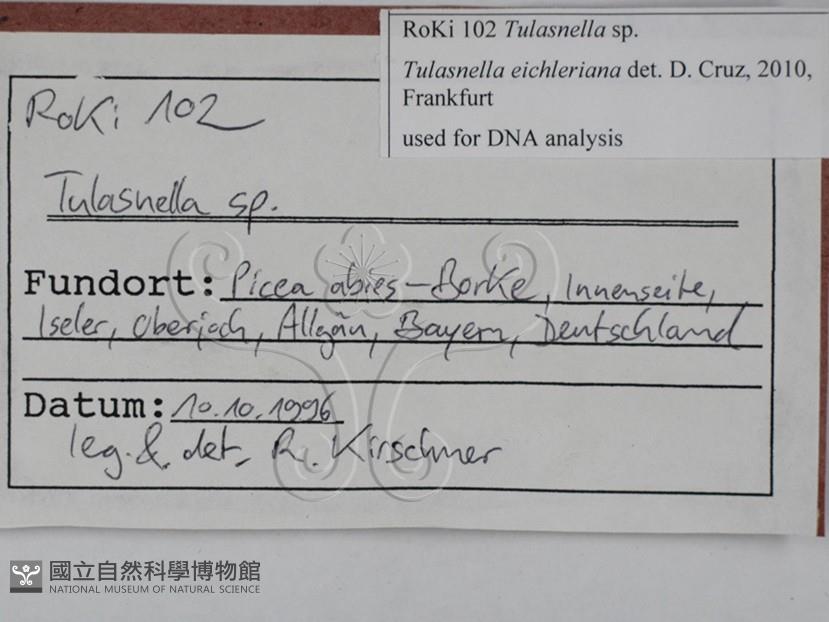 RoKi 102 Tulasnella sp.
Tulasnella eichleriana det. D. Cruz, 2010,
Frankfurt
used for DNA analysis
RoKi 102
Tulasnella sp.
Fundort: Picea abies-Borke, Innenseite,
Iseler, Oberjoch, Allgäu, Bayern, Deutschland
Datum: 10.10.1996
leg. & det. R. Kirschner
國立自然科學博物館
NATIONAL MUSEUM OF NATURAL SCIENCE